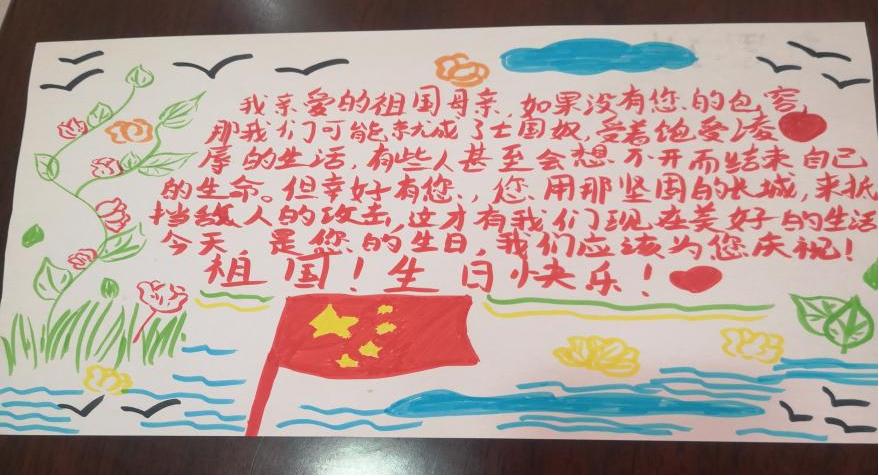 我亲爱的祖国母亲,如果没有您的包容,
那我们可能就成了亡国奴,受着饱受凌
辱的生活,有些人甚至会想不开而结束自己
的生命。但幸好有您,,您用那坚固的长城,来抵
挡敌人的攻击,这才有我们现在美好的生活
今天,是您的生日,我们应该为您庆祝!
祖国!生日快乐!